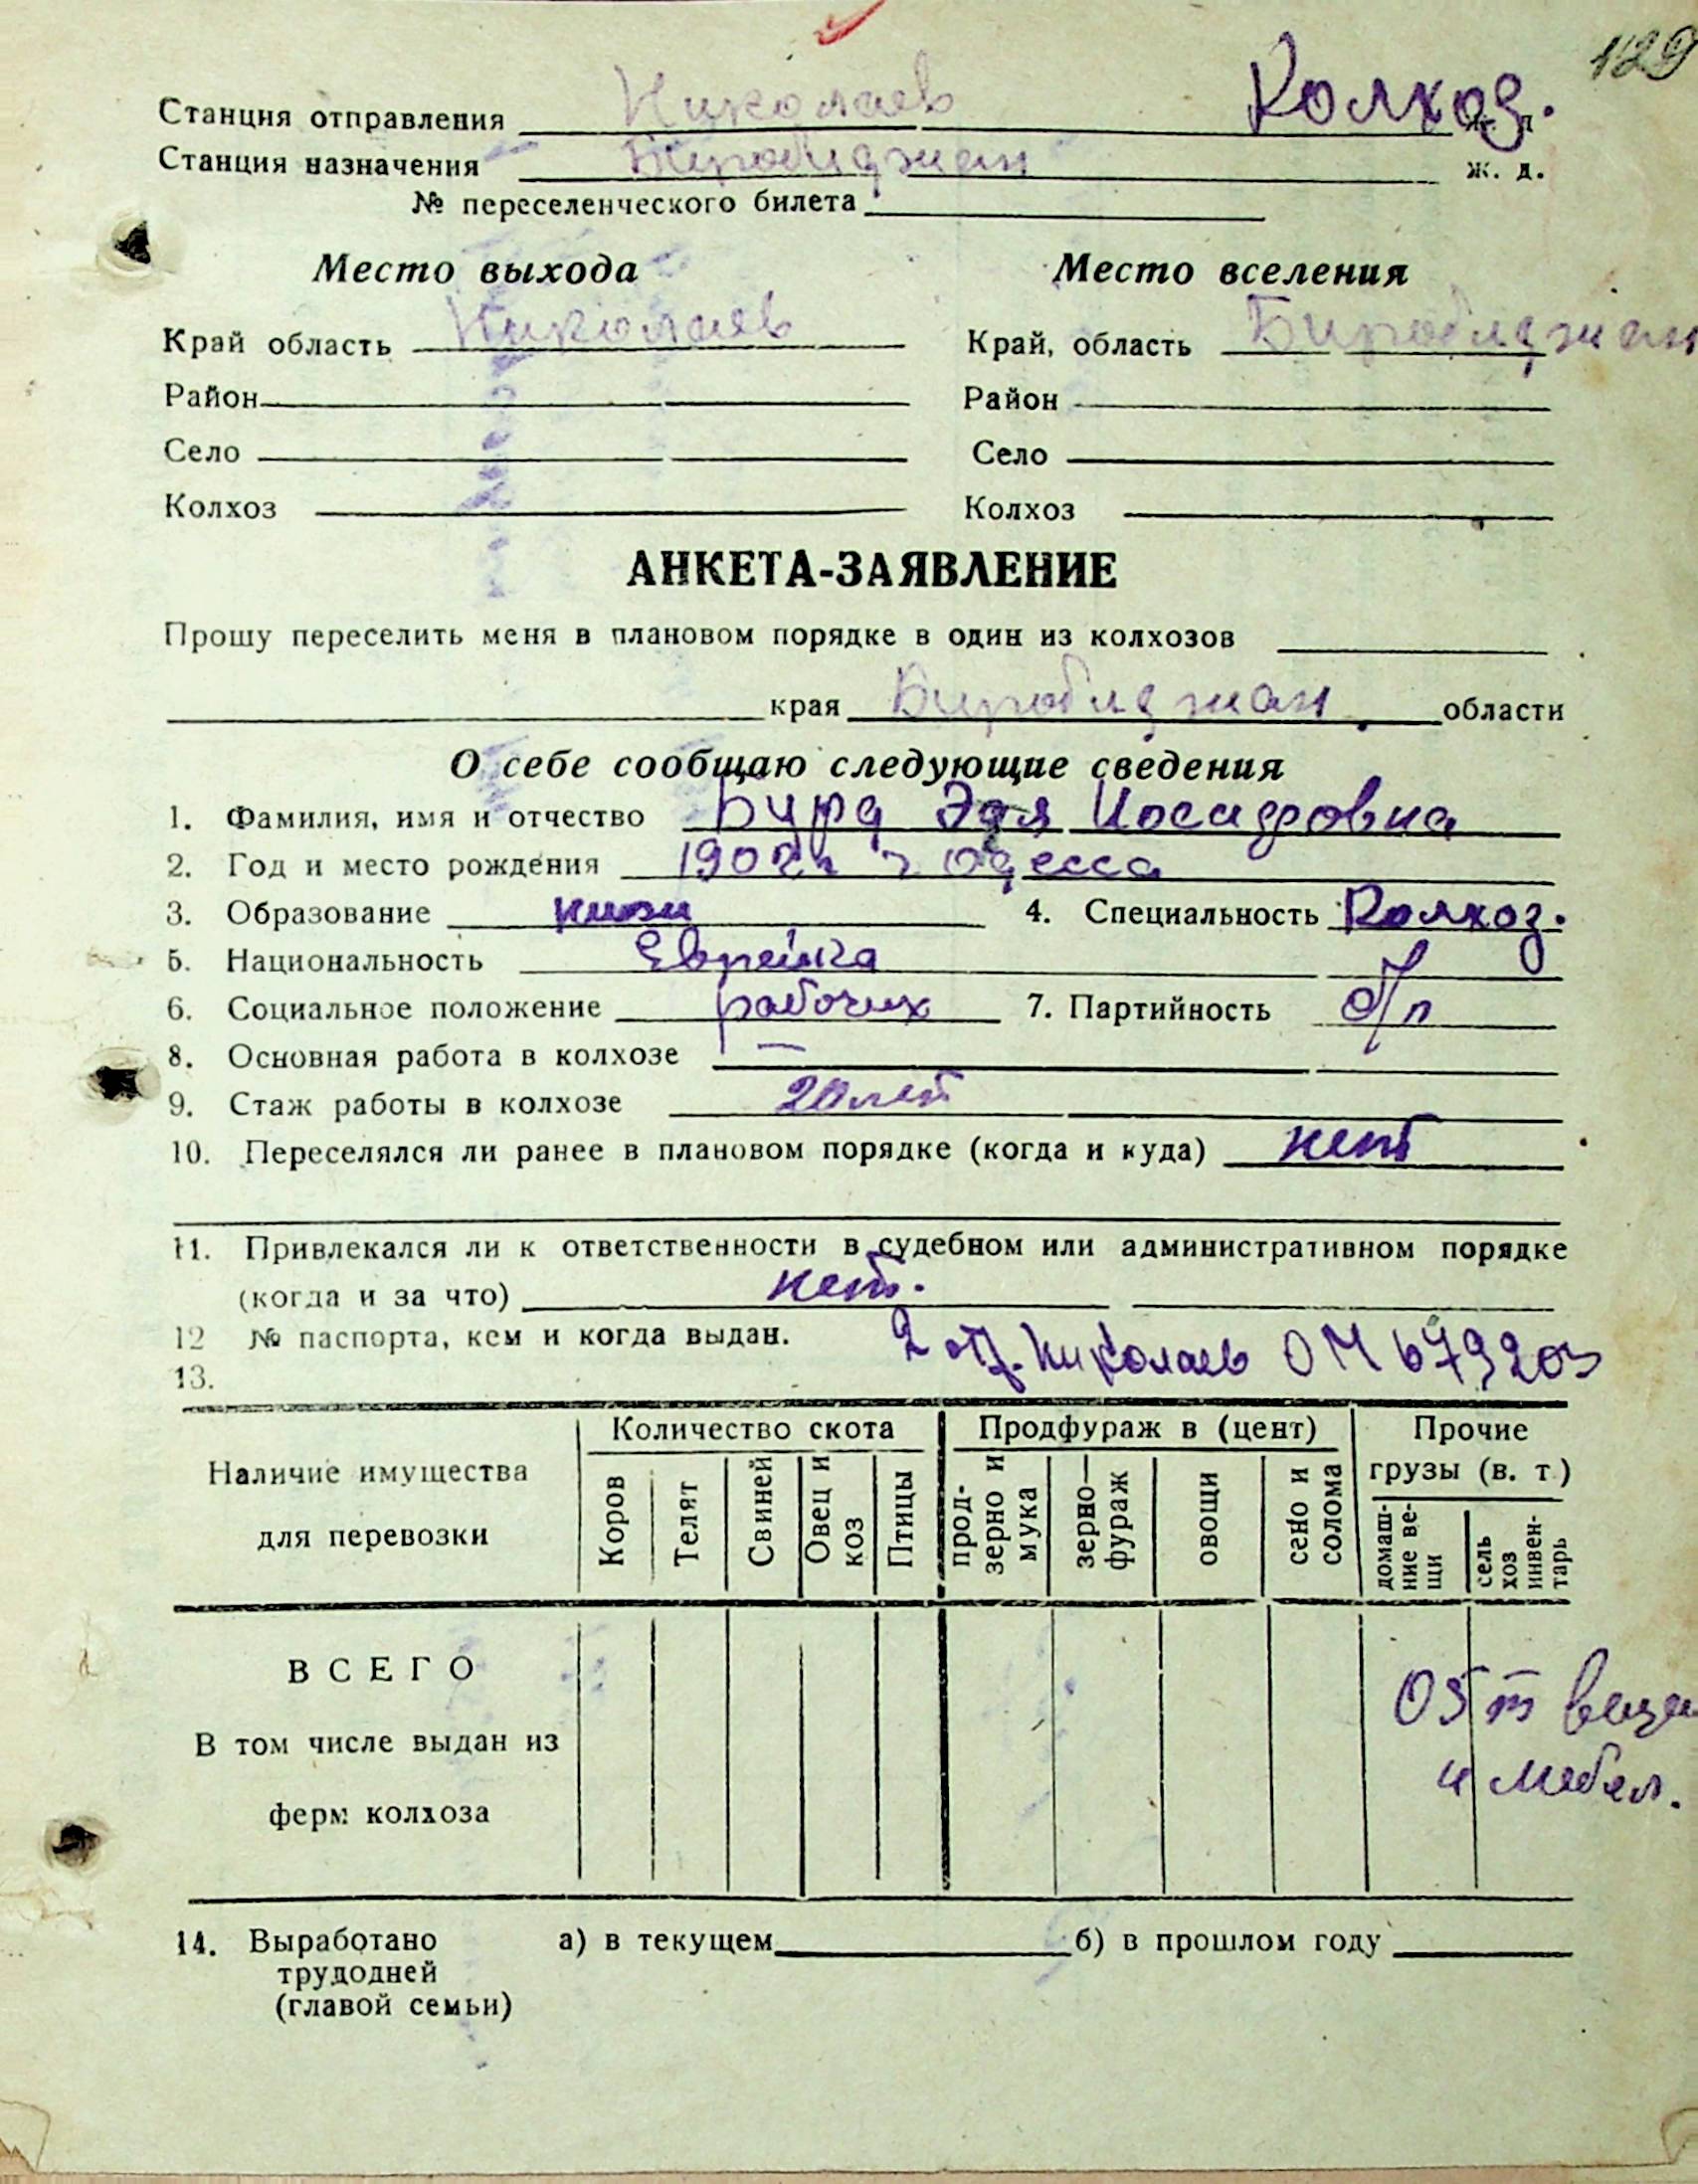 129
Колхоз.
Станция отправления Николаев ж. д.
Станция назначения Биробиджан ж. д.
№ переселенческого билета
Место выхода Место вселения
Край область Николаев Край, область Биробиджан
Район Район
Село Село
Колхоз Колхоз
АНКЕТА-ЗАЯВЛЕНИЕ
Прошу переселить меня в плановом порядке в один из колхозов
края Биробиджан области
О себе сообщаю следующие сведения
1. Фамилия, имя и отчество Бурд Эдя Иосифовна
2. Год и место рождения г Одесса
3. Образование низш 4. Специальность Колхоз.
5. Национальность Еврейка
6. Социальное положение рабочих 7. Партийность б/п
8. Основная работа в колхозе —
9. Стаж работы в колхозе 20 лет
10. Переселялся ли ранее в плановом порядке (когда и куда) нет
11. Привлекался ли к ответственности в судебном или административном порядке
(когда и за что) нет.
12 № паспорта, кем и когда выдан. 2 отд. Николаев ОМ 679203
13.
Наличие имущества для перевозки
Количество скота
Коров
Телят
Свиней
Овец и коз
Птицы
Продфураж в (цент)
прод-зерно и мука
зерно—фураж
овощи
сено и солома
Прочие грузы (в. т.)
домаш-ние ве-щи
сель хоз инвен-тарь
ВСЕГО
05 т вещи
В том числе выдан из
и мебел.
ферм колхоза
14. Выработано а) в текущем б) в прошлом году
трудодней
(главой семьи)